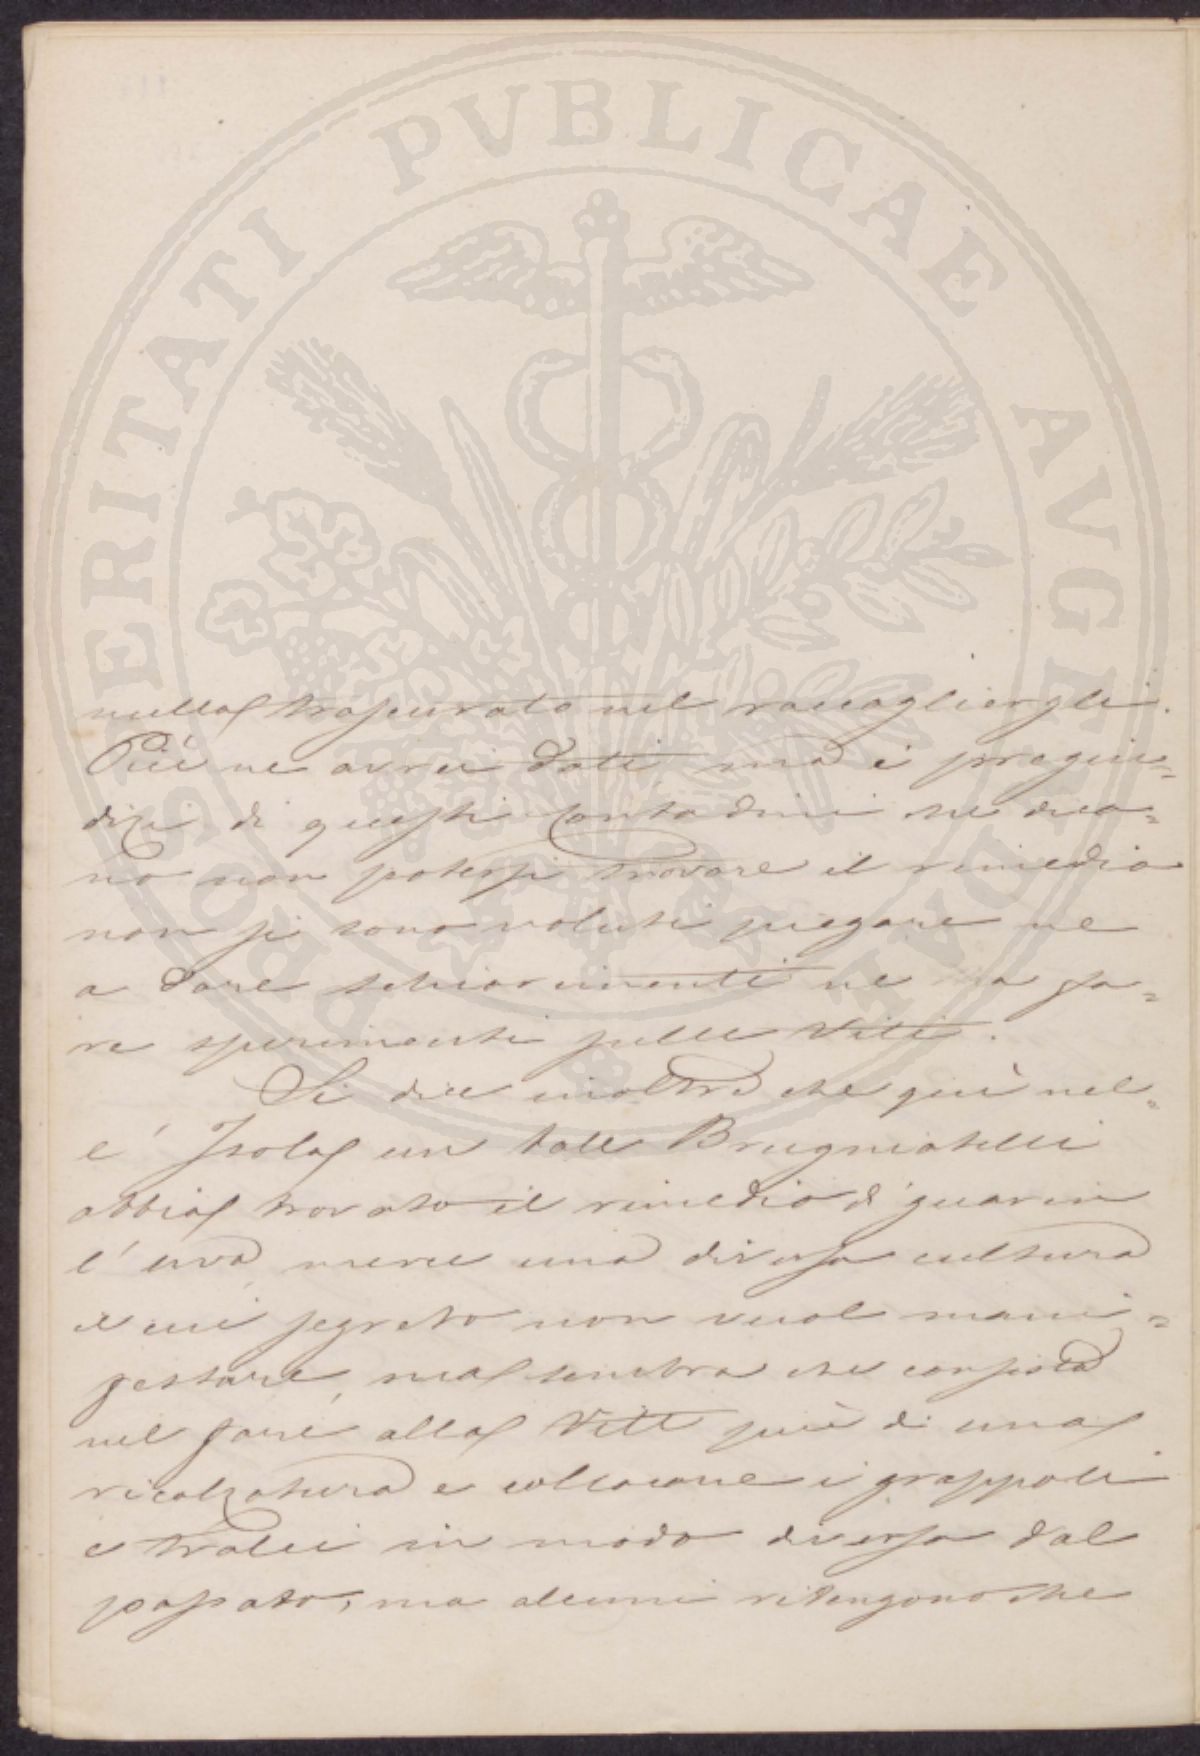 PROSPERITATI PVBLICAE AVGENDAE
nulla trascurato nel raccogliergli.
Più ne avrei dati, ma i pregiu=
dizi di questi Contadini che dico=
no non potersi trovare il rimedio
non si sono voluti piegare ne
a dare schiarimenti ne a fa=
re sperimenti sulle Viti.
Si dice inoltre che quì nel=
l' Isola un tale Brugniatelli
abbia trovato il rimedio di guarire
l' uva merce una diversa cultura
il cui segreto non vuol mani=
festare, ma sembra che consista
nel fare alla Vite più di una
ricalzatura e collocare i grappoli
e tralci in modo diverso dal
passato, ma alcuni ritengono che